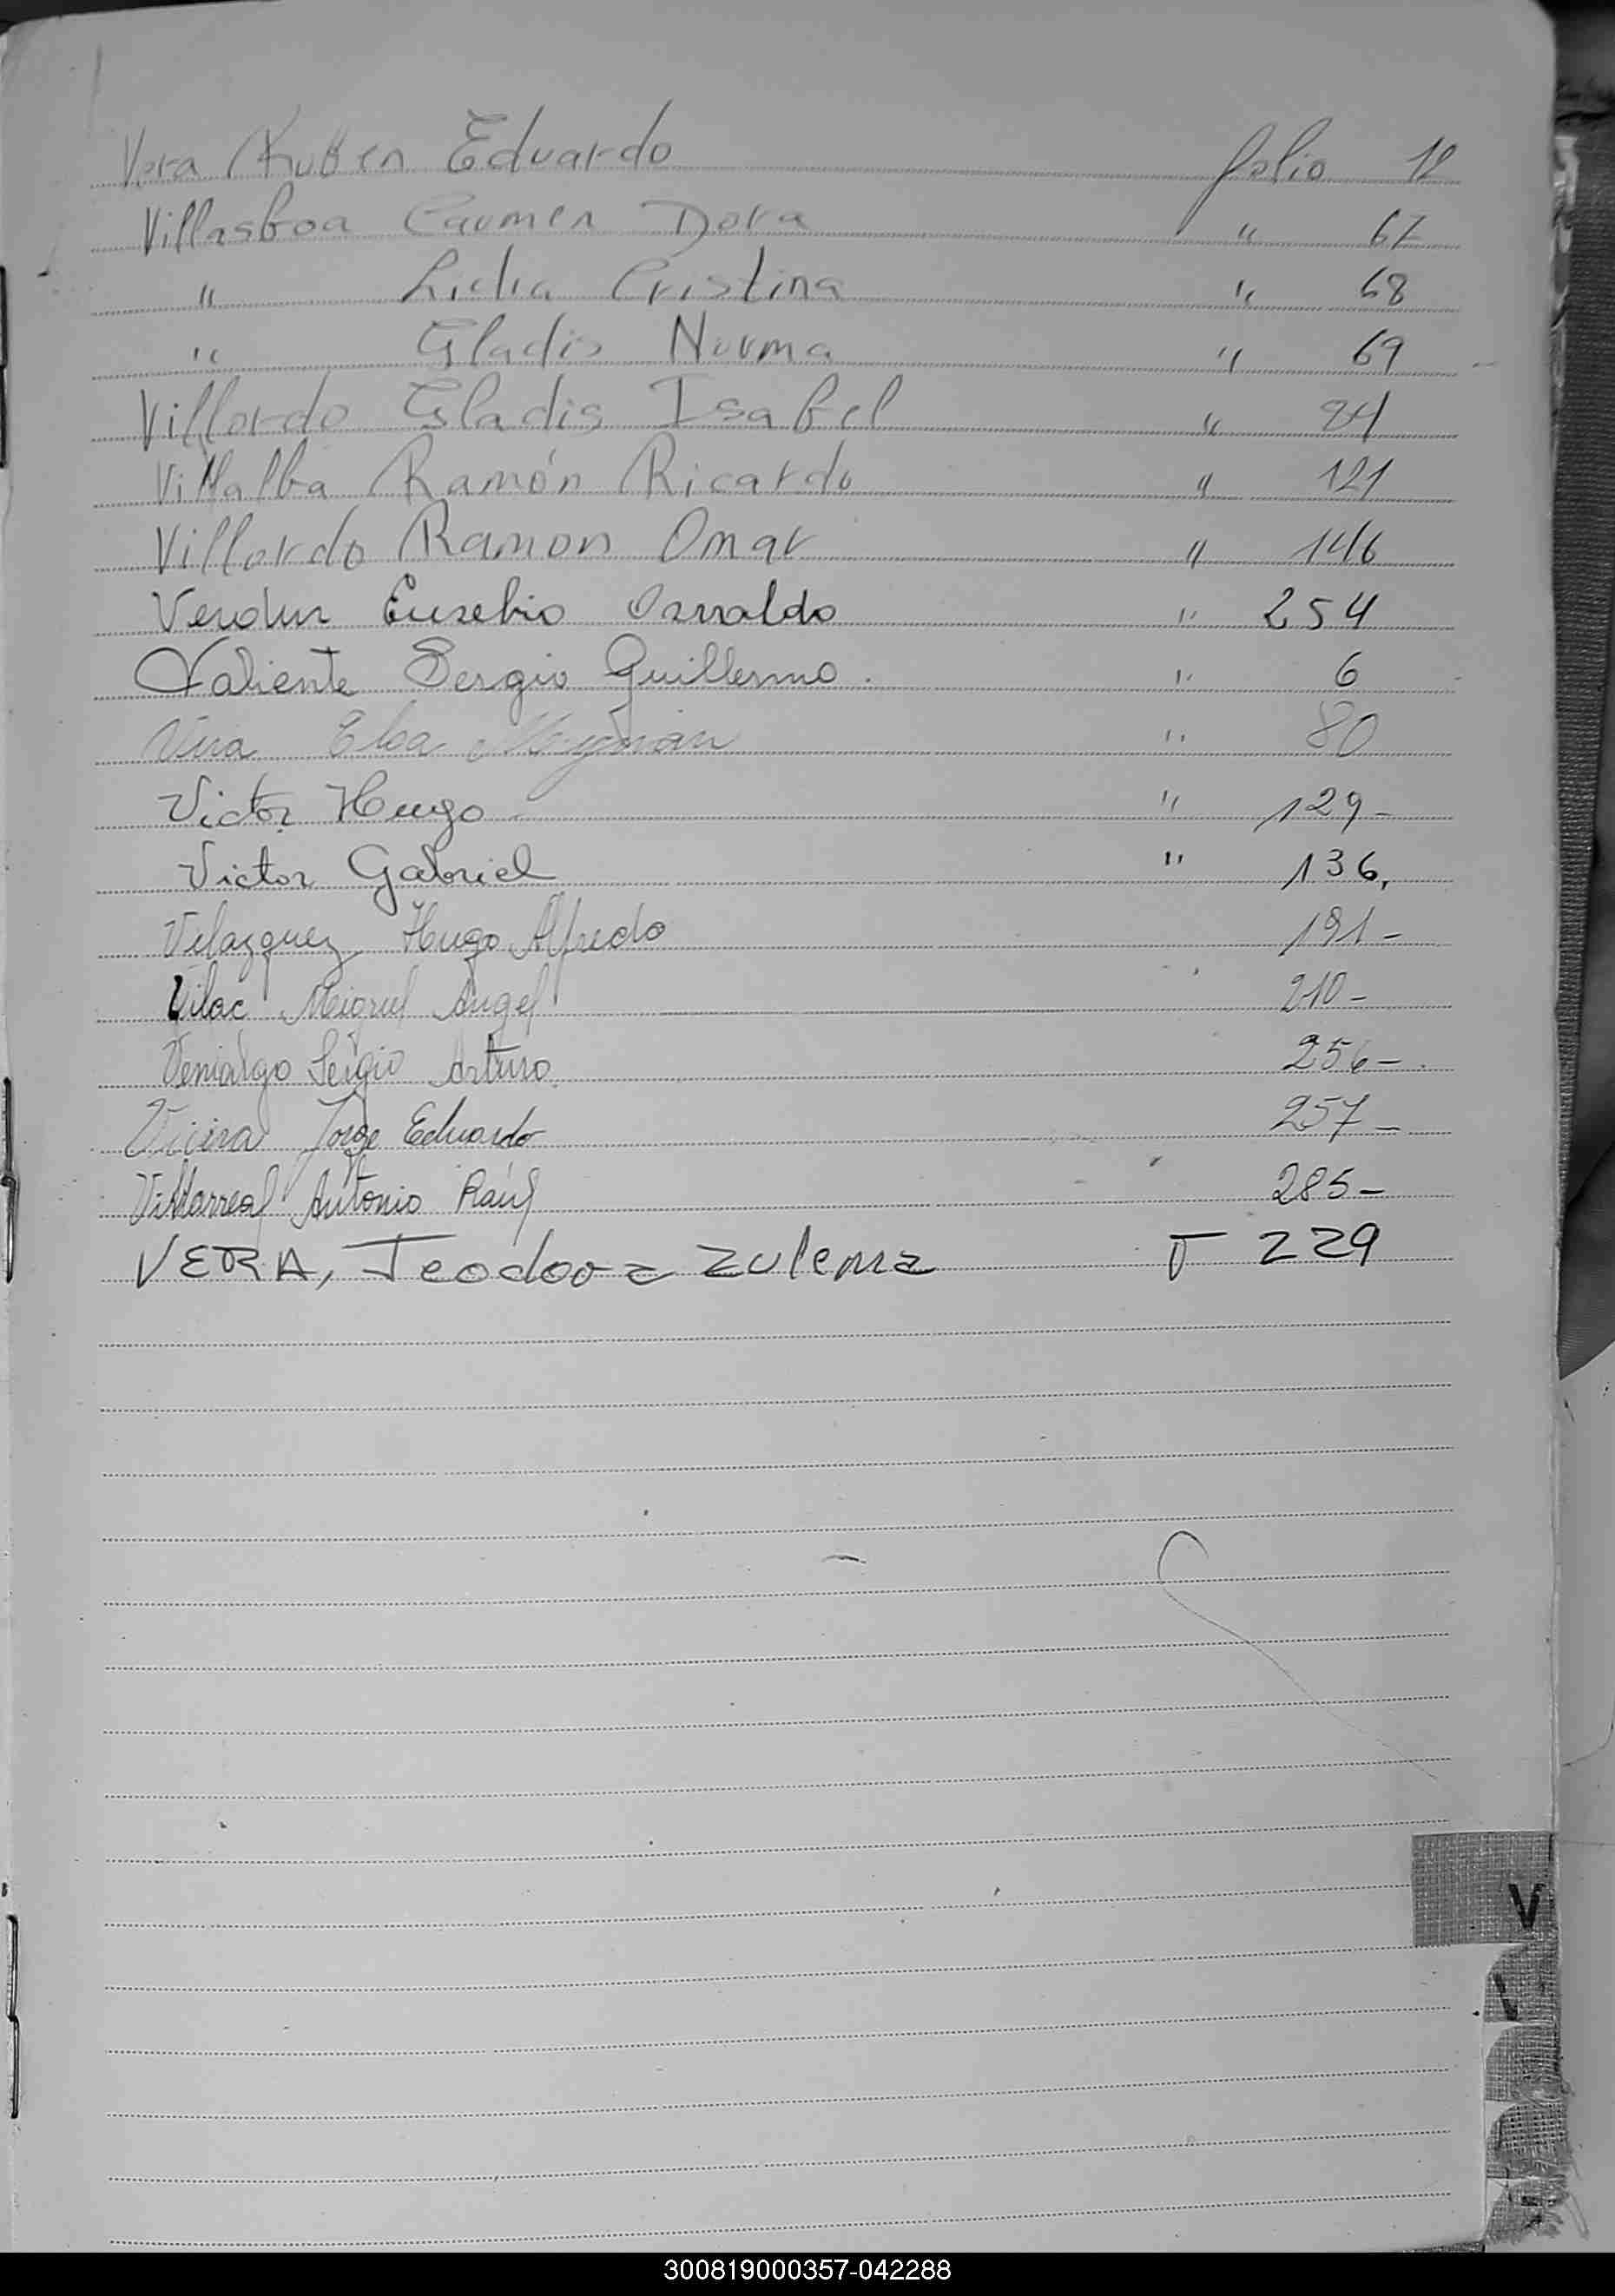 Vera Ruben Eduardo folio 12
Villasboa Carmen Dora " 67
" Lidia Cristina " 68
" Gladis Norma " 69
Villordo Gladis Isabel " 84
Villalba Ramón Ricardo " 121
Villordo Ramon Omar " 146
Verdun Eusebio Osvaldo " 254
Valiente Sergio Guillermo. " 6
Vera Elba " 80
Victor Hugo - " 129-
Victor Gabriel " 136,
Velazquez Hugo Alfredo 191-
Angel 210-
Venialgo Sergio Arturo. 256-
Vieira Jorge Eduardo 257-
Villarreal Antonio Raúl 285-
VERA, Teodora Zulema F 229
V
300819000357-042288